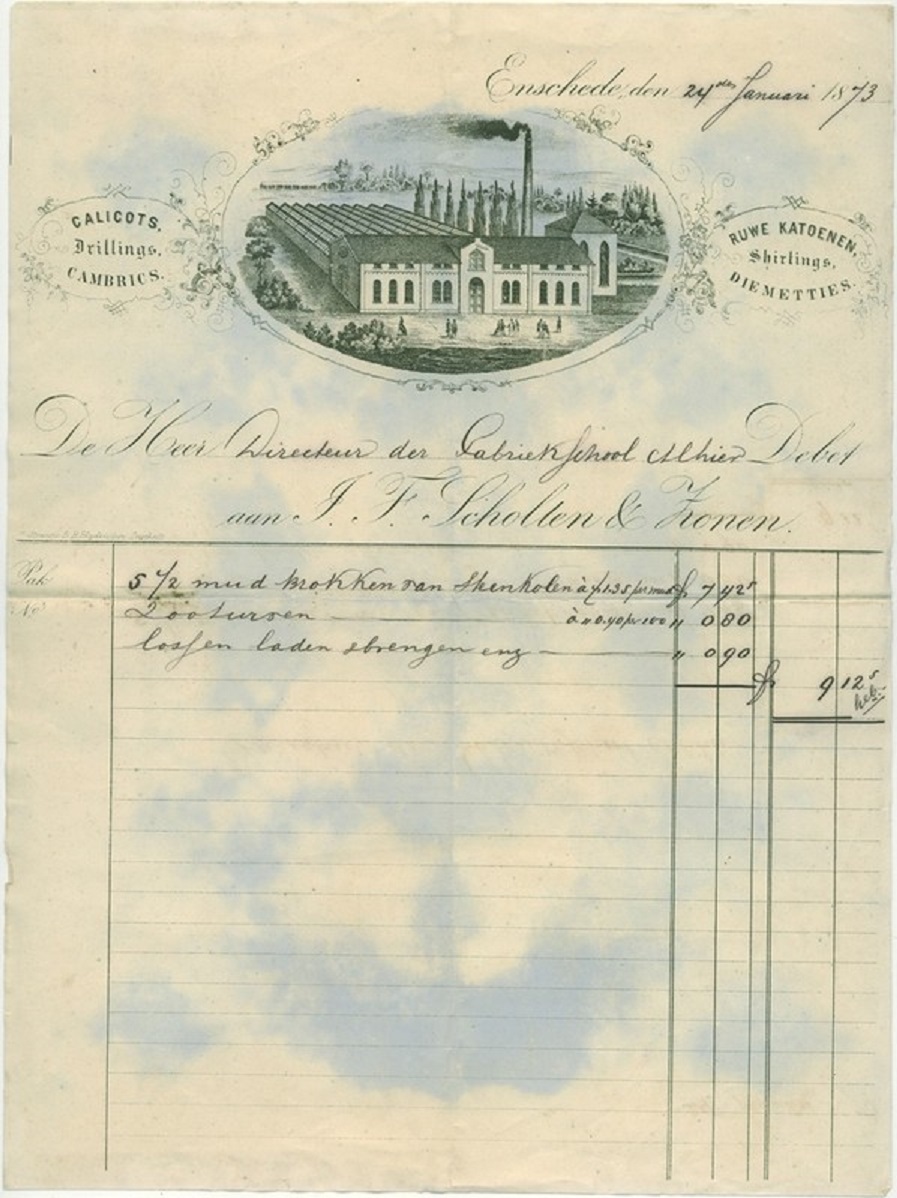 Enschede, den 24sten Januari 1873
CALICOTS,
Drillings,
CAMBRICS.
RUWE KATOENEN,
Shirtings,
DIEMETTIES.
De Heer Directeur der Fabriekschool Alhier Debet
aan J. F. Scholten & Zonen.
Pak
No
5 1/2 mud brokken van Steenkolen à f 1.35 per mud f 7 42 5
200 turven à " 0.40 per 100 " 0 80
lossen laden brengen enz " 0 90
f 9 12 5